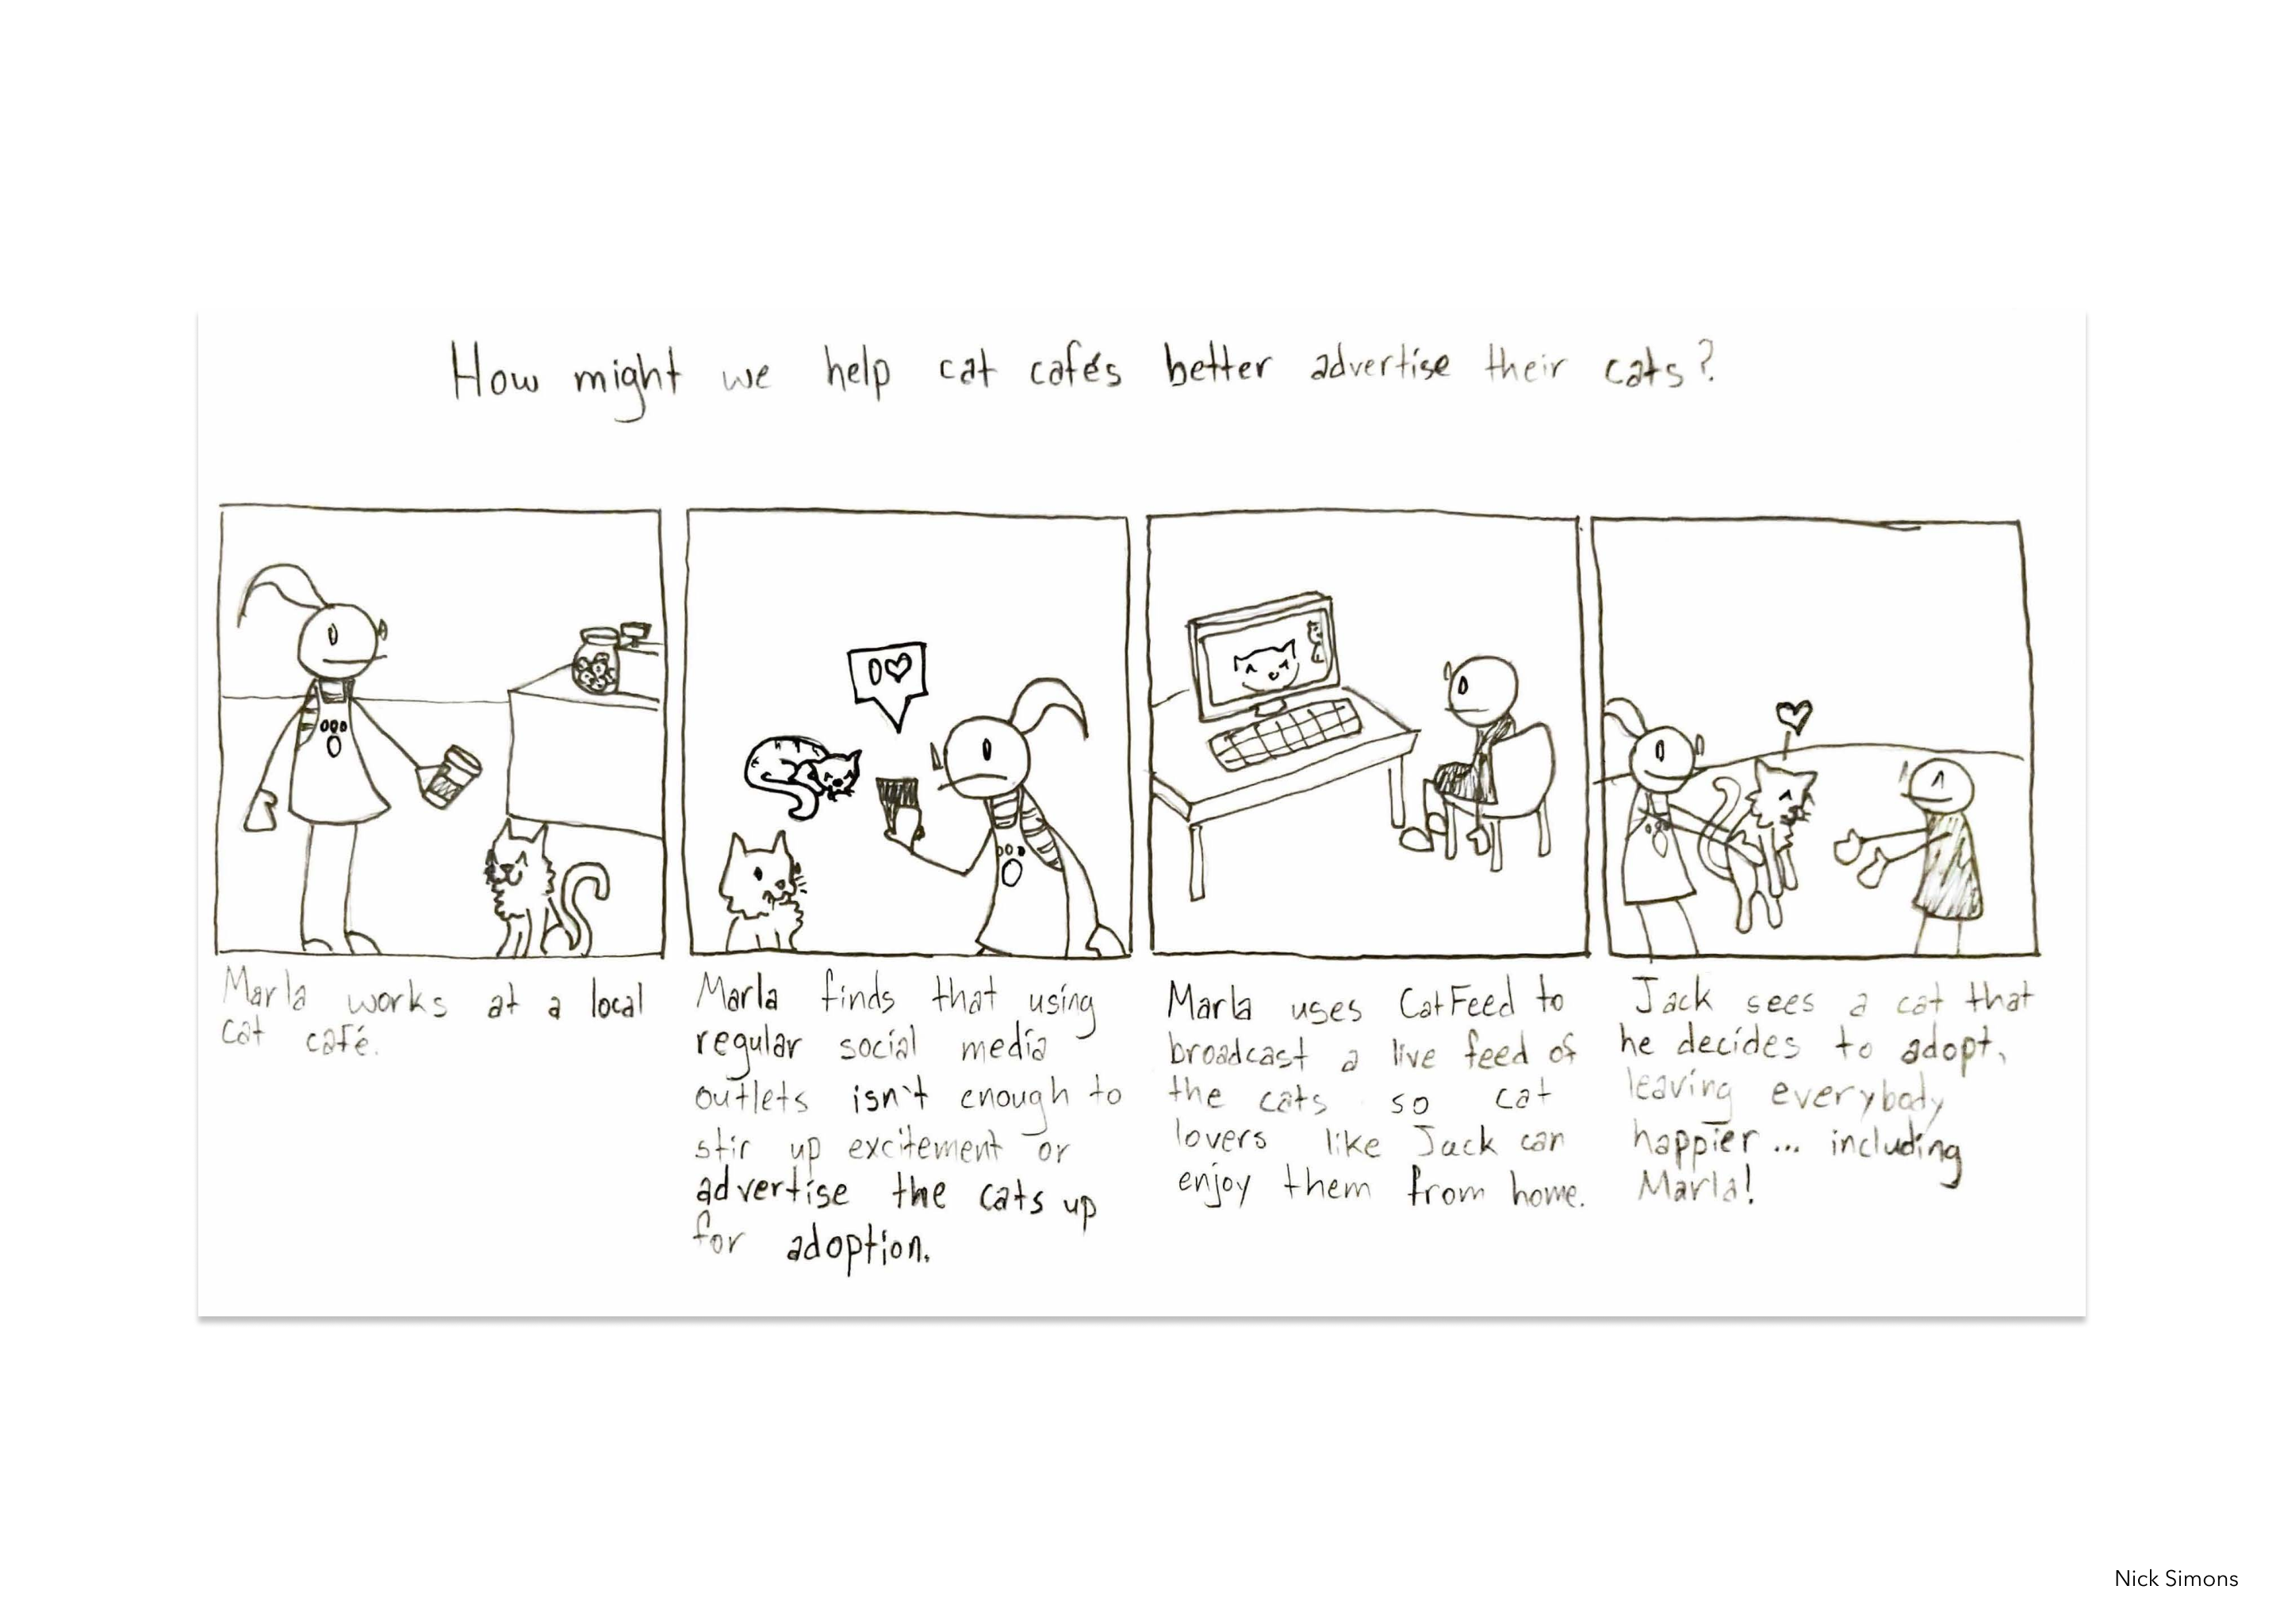 How might we help cat cafés better advertise their cats?
0
Marla works at a local
cat café.
Marla finds that using
regular social media
outlets isn't enough to
stir up excitement or
advertise the cats up
for adoption.
Marla uses CatFeed to
broadcast a live feed of
the cats so cat
lovers like Jack can
enjoy them from home.
Jack sees a cat that
he decides to adopt,
leaving everybody
happier... including
Marla!
Nick Simons